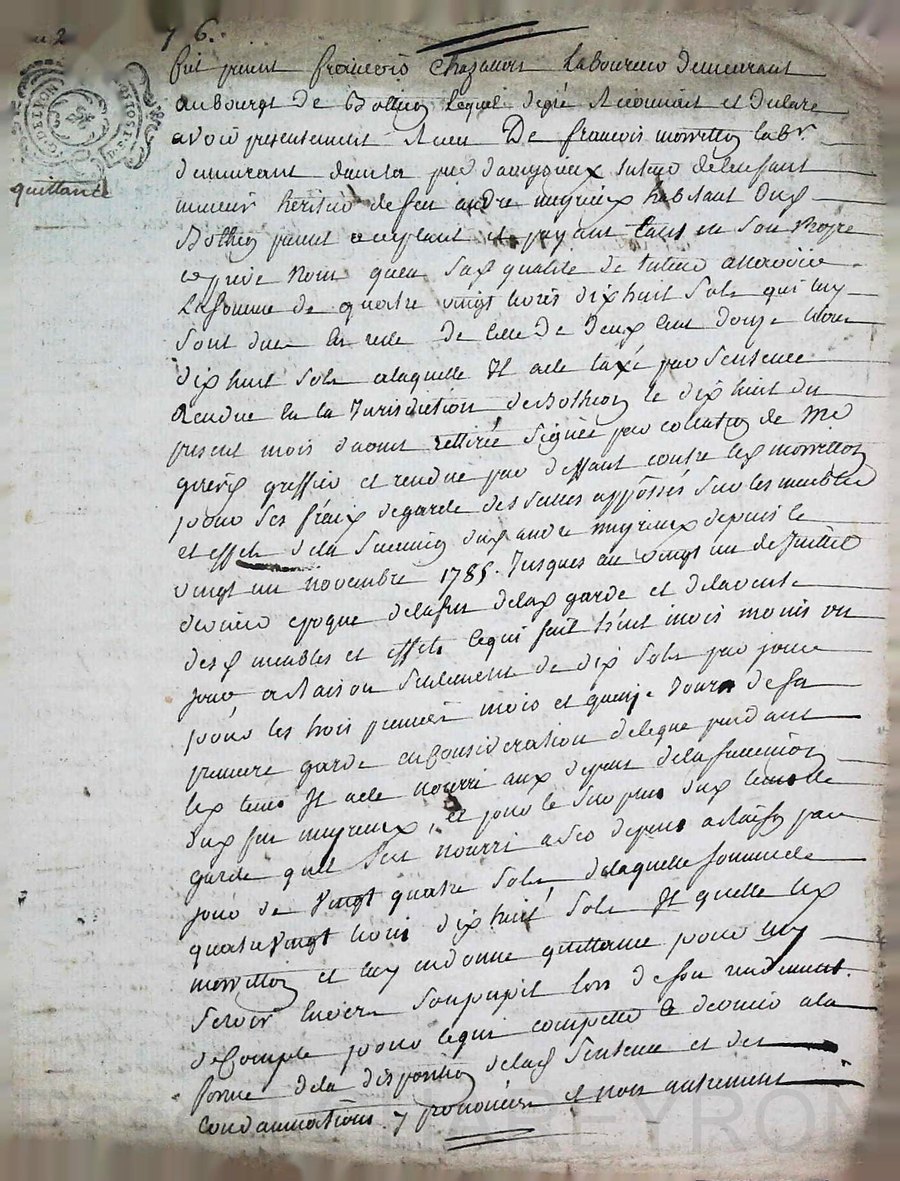 76.
fut présent françois chazallon Laboureur demeurant
au bourgt de Bothion lequel degré Reconnait et declare
avoir presentement Receu De françois morrillon lab.r
demeurant dans la
quittance
mineur heritier de feu andre meyrieux habitant dud
Bothion present acceptant et payant tant en son propre
et prive Nom quen sad qualite de tuteur
La somme de quatre vingt livres dix huit sols qui luy
sont dues En reste De celle De Deux Cent Douze livres
dix huit sols alaquelle Il a ete taxé par Sentence
Rendue En la Jurisdiction de Bothion le dix huit du
present mois daoust rettirée signée par colation de Me
greffier et rendue par deffaut contre led morrillon
pour ses fraix de garde des scellés appossés sur les meubles
et effets dela Succession dud andre meyrieux depuis le
vingt un novembre 1785. Jusques au vingt un de Juillet
dernier epoque delafin delad garde et delavente
desd meubles et effets cequi fait huit mois moins un
jour, a Raison seulement de dix sols par jour
pour les trois premiers mois et quinze Jours de sa
premiere garde en Consideration deceque pendant
led tems Il a ete nourri aux depens dela succession
dud feu meyrieux, et pour le surplus dud
garde quil sest nourri a ses depens a Raison par
jour de Vingt quatre Sols delaquelle somme de
quatre Vingt livres dix huit Sols Il quitte led
morrillon et luy en donne quittance pour luy
servir Envers son pupil lors de son rendement
de Compte pour lequi compette ce dernier a la
forme dela disposition delad Sentence et des
condamnations y prononcées et non autrement